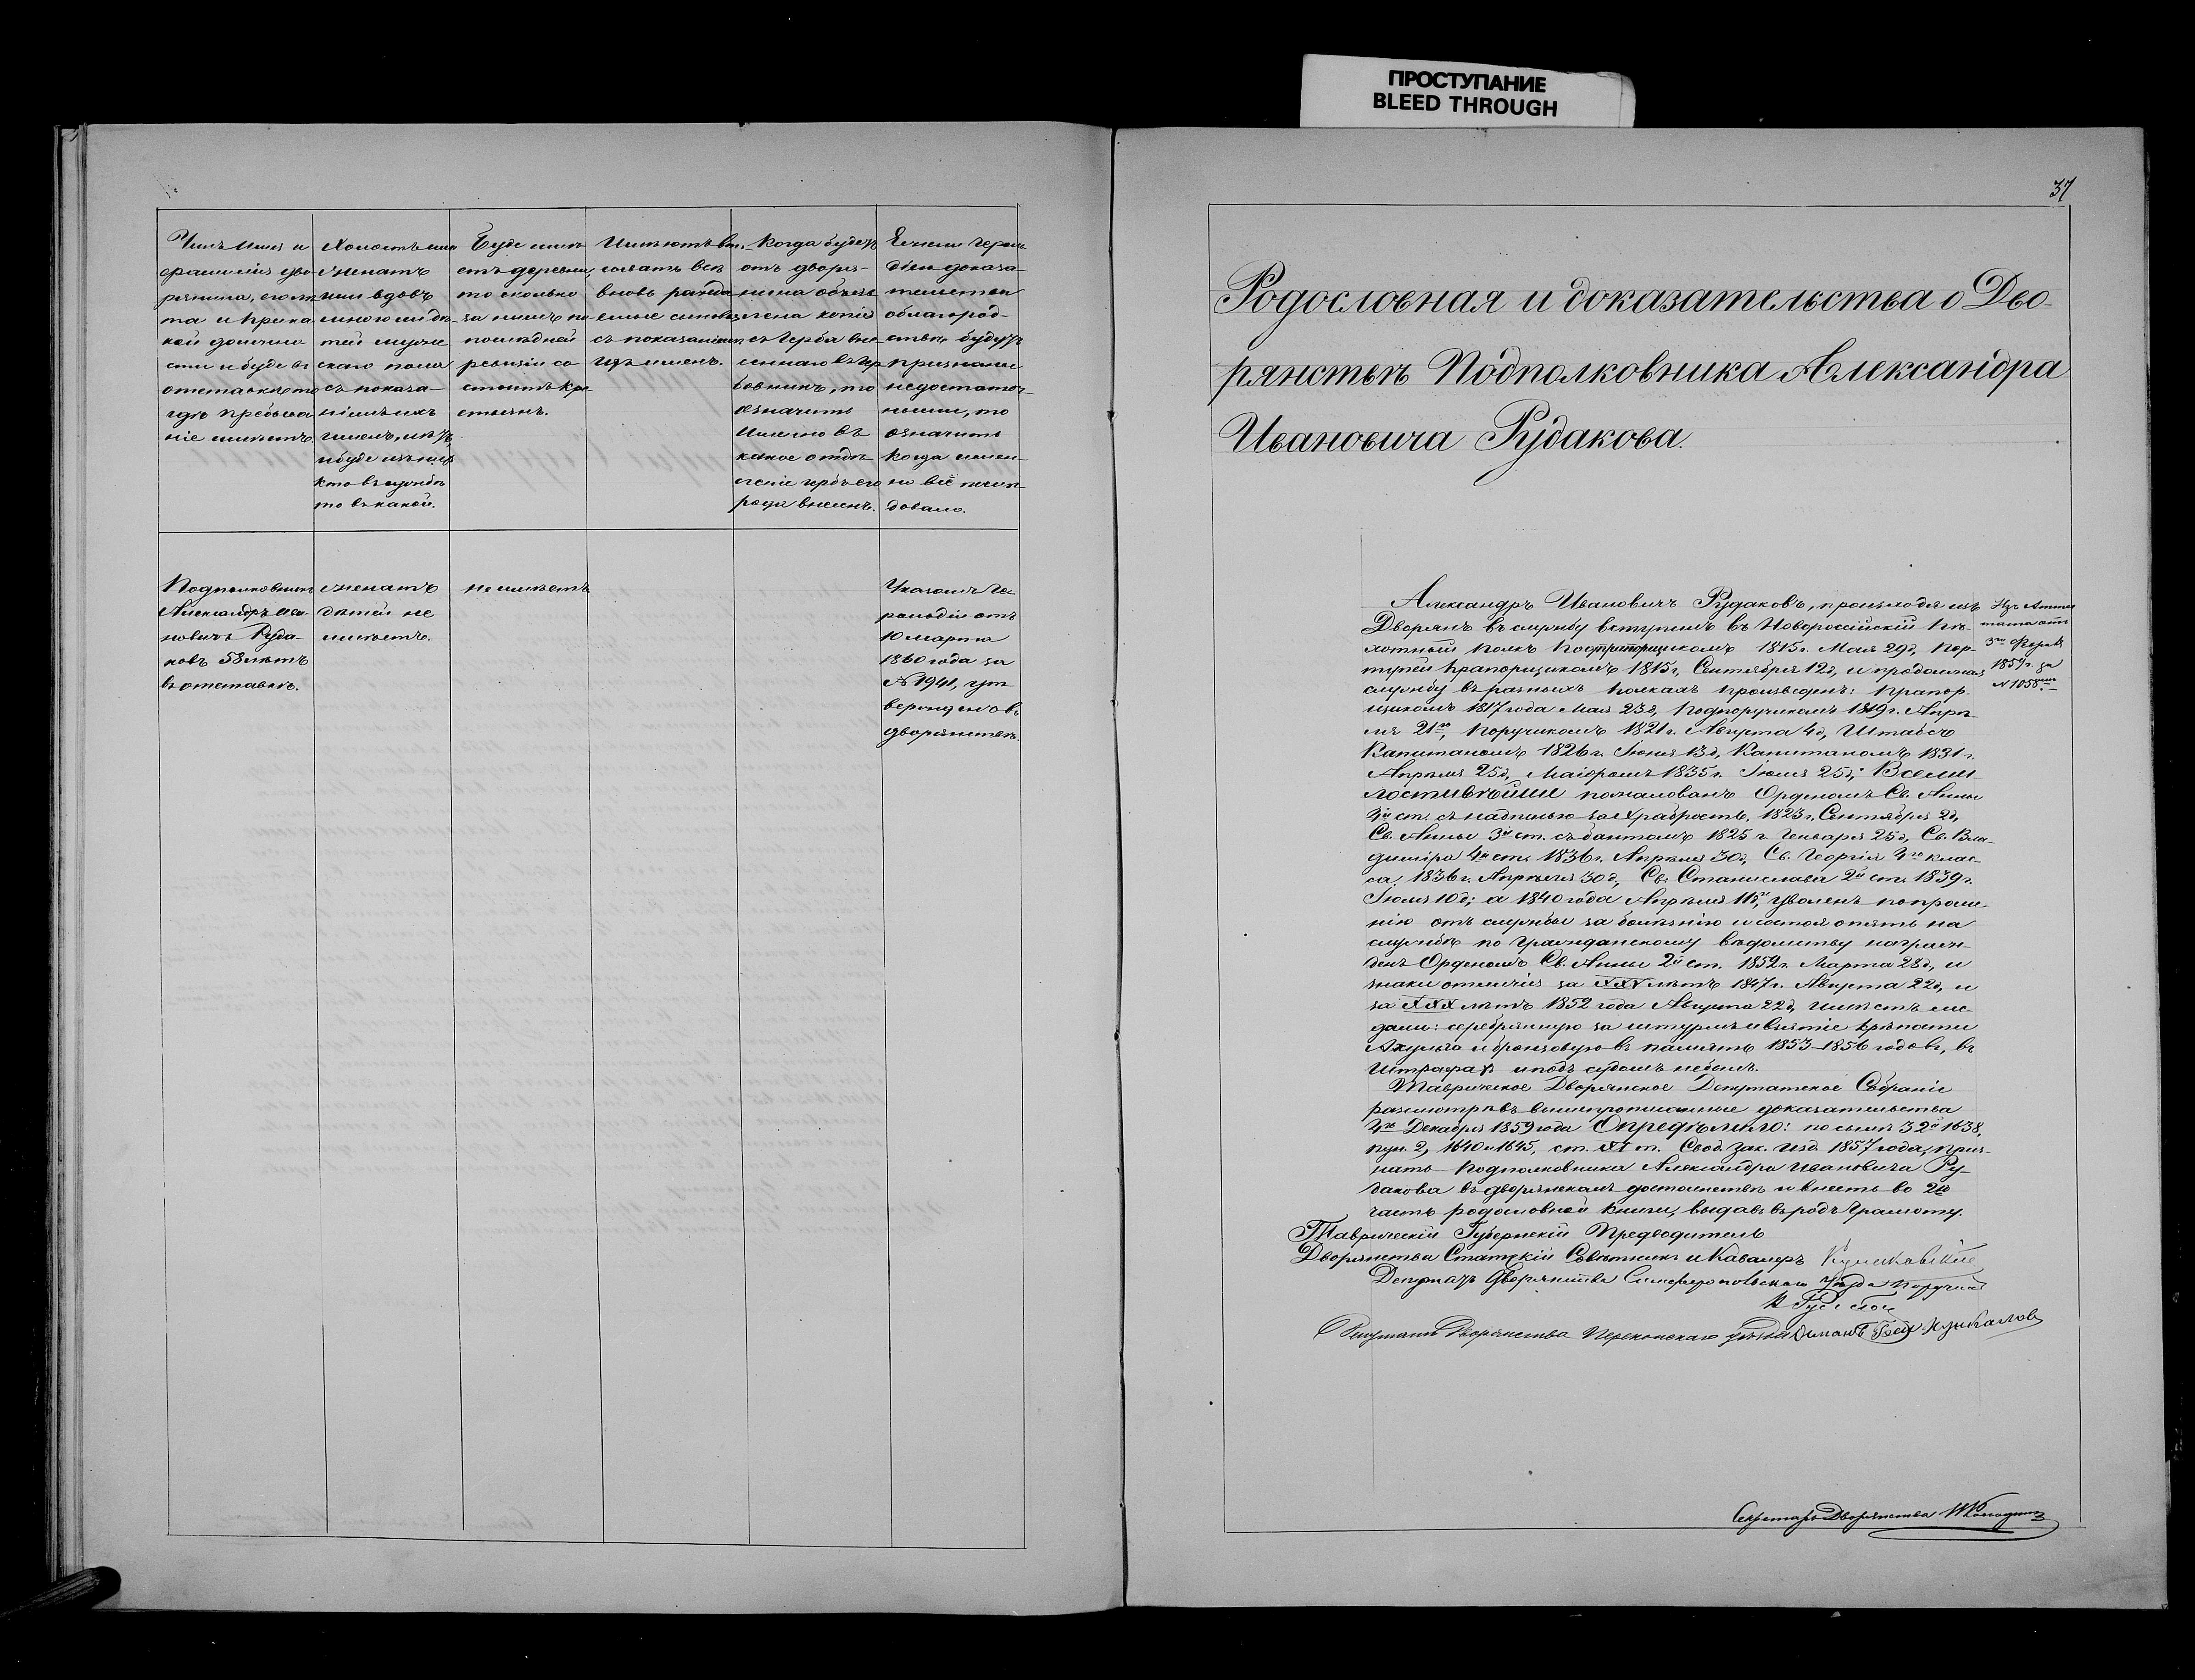 ПРОСТУПАНИЕ
BLEED THROUGH
Чинъ имя и
фамилія дво-
рянина, его лѣ-
та и при ка-
кой должно-
сти и буде въ
отставкѣ то
гдѣ пребыва-
ніе имѣетъ.
Холостъ или
женатъ
или вдовъ
много ли дѣ-
тей муже
скаго пола
съ показа-
ніемъ ихъ
именъ, лѣтъ,
и буде изъ нихъ
кто въ службѣ
то въ какой.
Буде имѣ-
етъ деревни,
то сколько
за нимъ по
послѣдней
ревизіи со
стоитъ кре
стьянъ.
Имѣютъ вы-
сылать всѣ
вновь ражда
емые сыновья
съ показаніемъ
ихъ именъ.
Когда будетъ
отъ дворя-
нина объяв-
лена копія
съ Герба вне-
сеннаго въ Гер
бовникъ, то
означить
именно въ
какое отдѣ-
леніе гербъ его
рода внесенъ.
Ежели Героль
діею доказа-
тельства
облагород-
ствѣ будутъ
признаны
недостаточ-
ными, то
означить
когда имен-
но всё послѣ-
довало.
Подполковникъ
Александръ Ива-
новичъ Руда-
ковъ 58 лѣтъ
въ отставкѣ.
женатъ
дѣтей не
имѣетъ.
не имѣетъ
Указомъ Ге-
рольдіи отъ
10 Марта
1860 года за
№ 1941, ут-
вержденъ въ
дворянствѣ.
37
Родословная и доказательства о Дво-
рянствѣ Подполковника Александра
Ивановича Рудакова.
Александръ Ивановичъ Рудаковъ, происходя изъ
Дворянъ въ службу вступилъ въ Новороссійскій Пѣ-
хотный полкъ Подпрапорщикомъ 1815г. Мая 29д, Пор-
тупей прапорщикомъ 1815г, Сентября 12д, и продолжая
службу въ разныхъ полкахъ произведенъ: Прапор-
щикомъ 1817 года Мая 23д, Подпоручикомъ 1819г. Апрѣ-
ля 21го, Поручикомъ 1821г. Августа 4д, Штабсъ
Капитаномъ 1826г. Іюня 13д, Капитаномъ 1831г.
Апрѣля 25д, Маіоромъ 1835г. Іюля 25д; Всеми-
лостивѣйше пожалованъ Орденомъ Св. Анны
4й ст. съ надписью за храбрость, 1823г. Сентября 2д,
Св. Анны 3й ст. съ бантомъ 1825 г. Генваря 25д, Св. Вла-
диміра 4й ст. 1836г. Апрѣля 30д, Св. Георгія 4го клас-
са, 1836г. Апрѣля 30д, Св. Станислава 2й ст. 1839г.
Іюля 10д; а 1840 года Апрѣля 11го, уволенъ по проше-
нію отъ службы за болѣзнію и состоя опять на
службѣ по Гражданскому вѣдомству награж-
денъ Орденомъ Св. Анны 2й ст. 1852г. Марта 28д, и
знаки отличія за XXV лѣтъ 1847г. Августа 22д, и
за XXX лѣтъ 1852 года Августа 22д, имѣетъ ме-
дали: серебрянную за штурмъ и взятіе крѣпости
Ахульго и бронзовую въ память 1853-1856 годовъ, въ
Штрафахъ и подъ судомъ не былъ.
Таврическое Дворянское Депутатское Собраніе
разсмотрѣвъ вышепрописанные доказательства
4го Декабря 1859 года Опредѣлило: по силѣ 32й 1638,
пун. 2, 1640 и 1645, ст. IX т. Свод. Зак. изд. 1857 года, приз-
нать Подполковника Александра Ивановича Ру-
дакова въ дворянскомъ достоинствѣ и внесть во 2ю
часть родословной книги, выдавъ въ родъ Грамоту.
Изъ Аттес
тата отъ
3го Февраля
1859г. за
№ 1058мъ
Таврическій Губернскій Предводитель
Дворянства Статскій Совѣтникъ и Кавалеръ
Депутатъ Дворянства Симферопольскаго Уѣзда Поручикъ
Депутатъ Дворянства Перекопскаго уѣзда
Секретарь Дворянства